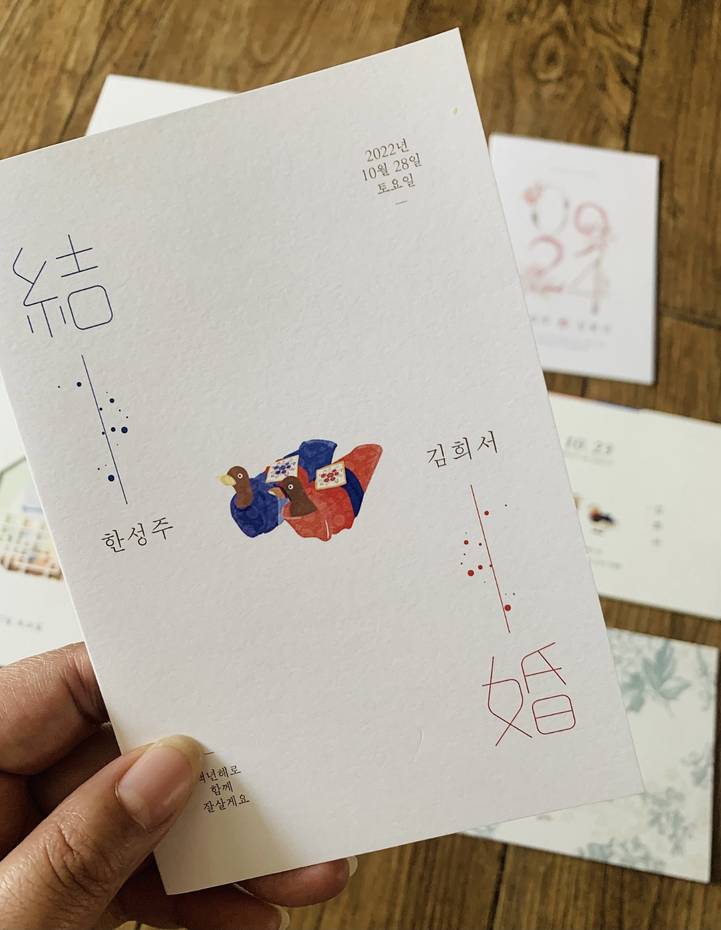 2022년
10월 28일
토요일
結
김희서
한성주
婚
년해로
함께
잘살게요
09
24
10. 23